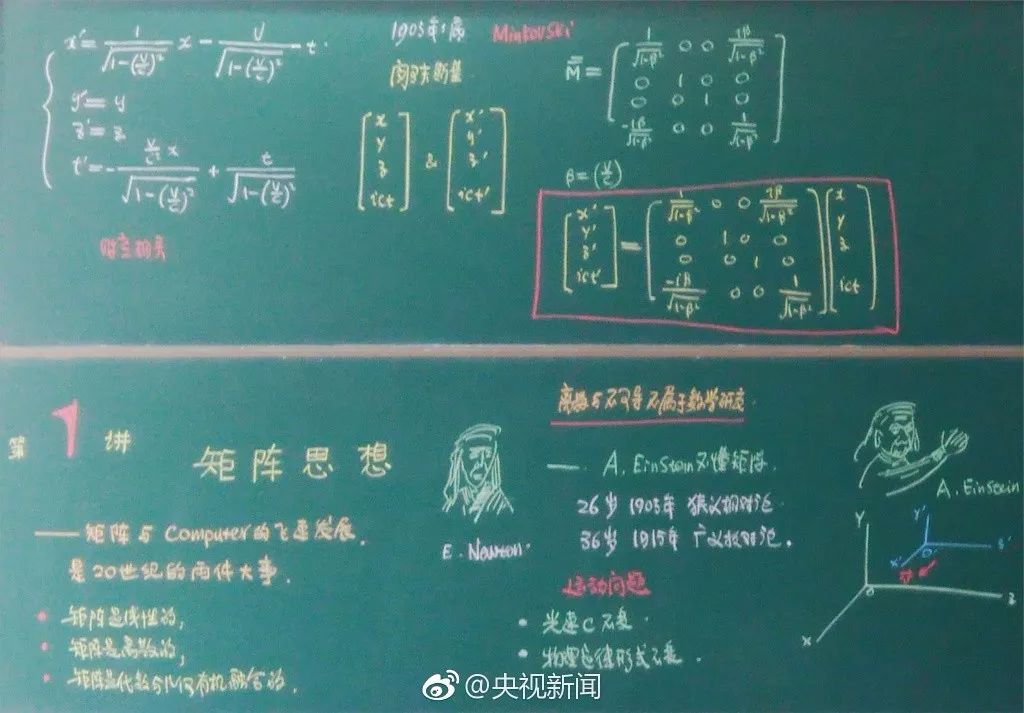 x' = 1/√(1-(V/C)²) x - V/√(1-(V/C)²) t.
y' = y
z' = z
t' = - (V/C² x)/√(1-(V/C)²) + t/√(1-(V/C)²)
1905年
MinkovSki
[x y z ict] & [x' y' z' ict']
M̿ = [1/√(1-β²) 0 0 iβ/√(1-β²)
0 1 0 0
0 0 1 0
-iβ/√(1-β²) 0 0 1/√(1-β²)]
β = (V/C)
[x' y' z' ict'] = [1/√(1-β²) 0 0 iβ/√(1-β²)
0 1 0 0
0 0 1 0
-iβ/√(1-β²) 0 0 1/√(1-β²)] [x y z ict]
第1讲
矩阵思想
—— 矩阵与Computer的飞速发展,
是20世纪的两件大事.
• 矩阵是线性的,
• 矩阵是离散的,
• 矩阵是代数与几何有机融合的.
E. Newton.
离散与不可导不属于数学研究.
—— A. EinStein不懂矩阵.
26岁 1905年 狭义相对论.
36岁 1915年 广义相对论.
运动问题
• 光速C不变.
• 物理定律形式不变.
A. EinStein
Y
Y'
X'
O'
Z'
V
O
X
Z
@央视新闻